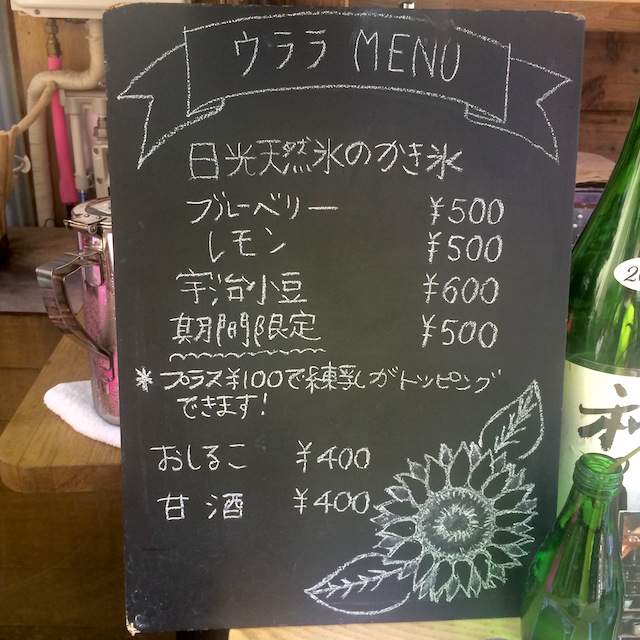 ウララ MENU
日光天然氷のかき氷
ブルーベリー ¥500
レモン ¥500
宇治小豆 ¥600
期間限定 ¥500
*プラス¥100で練乳がトッピング
できます!
おしるこ ¥400
甘酒 ¥400